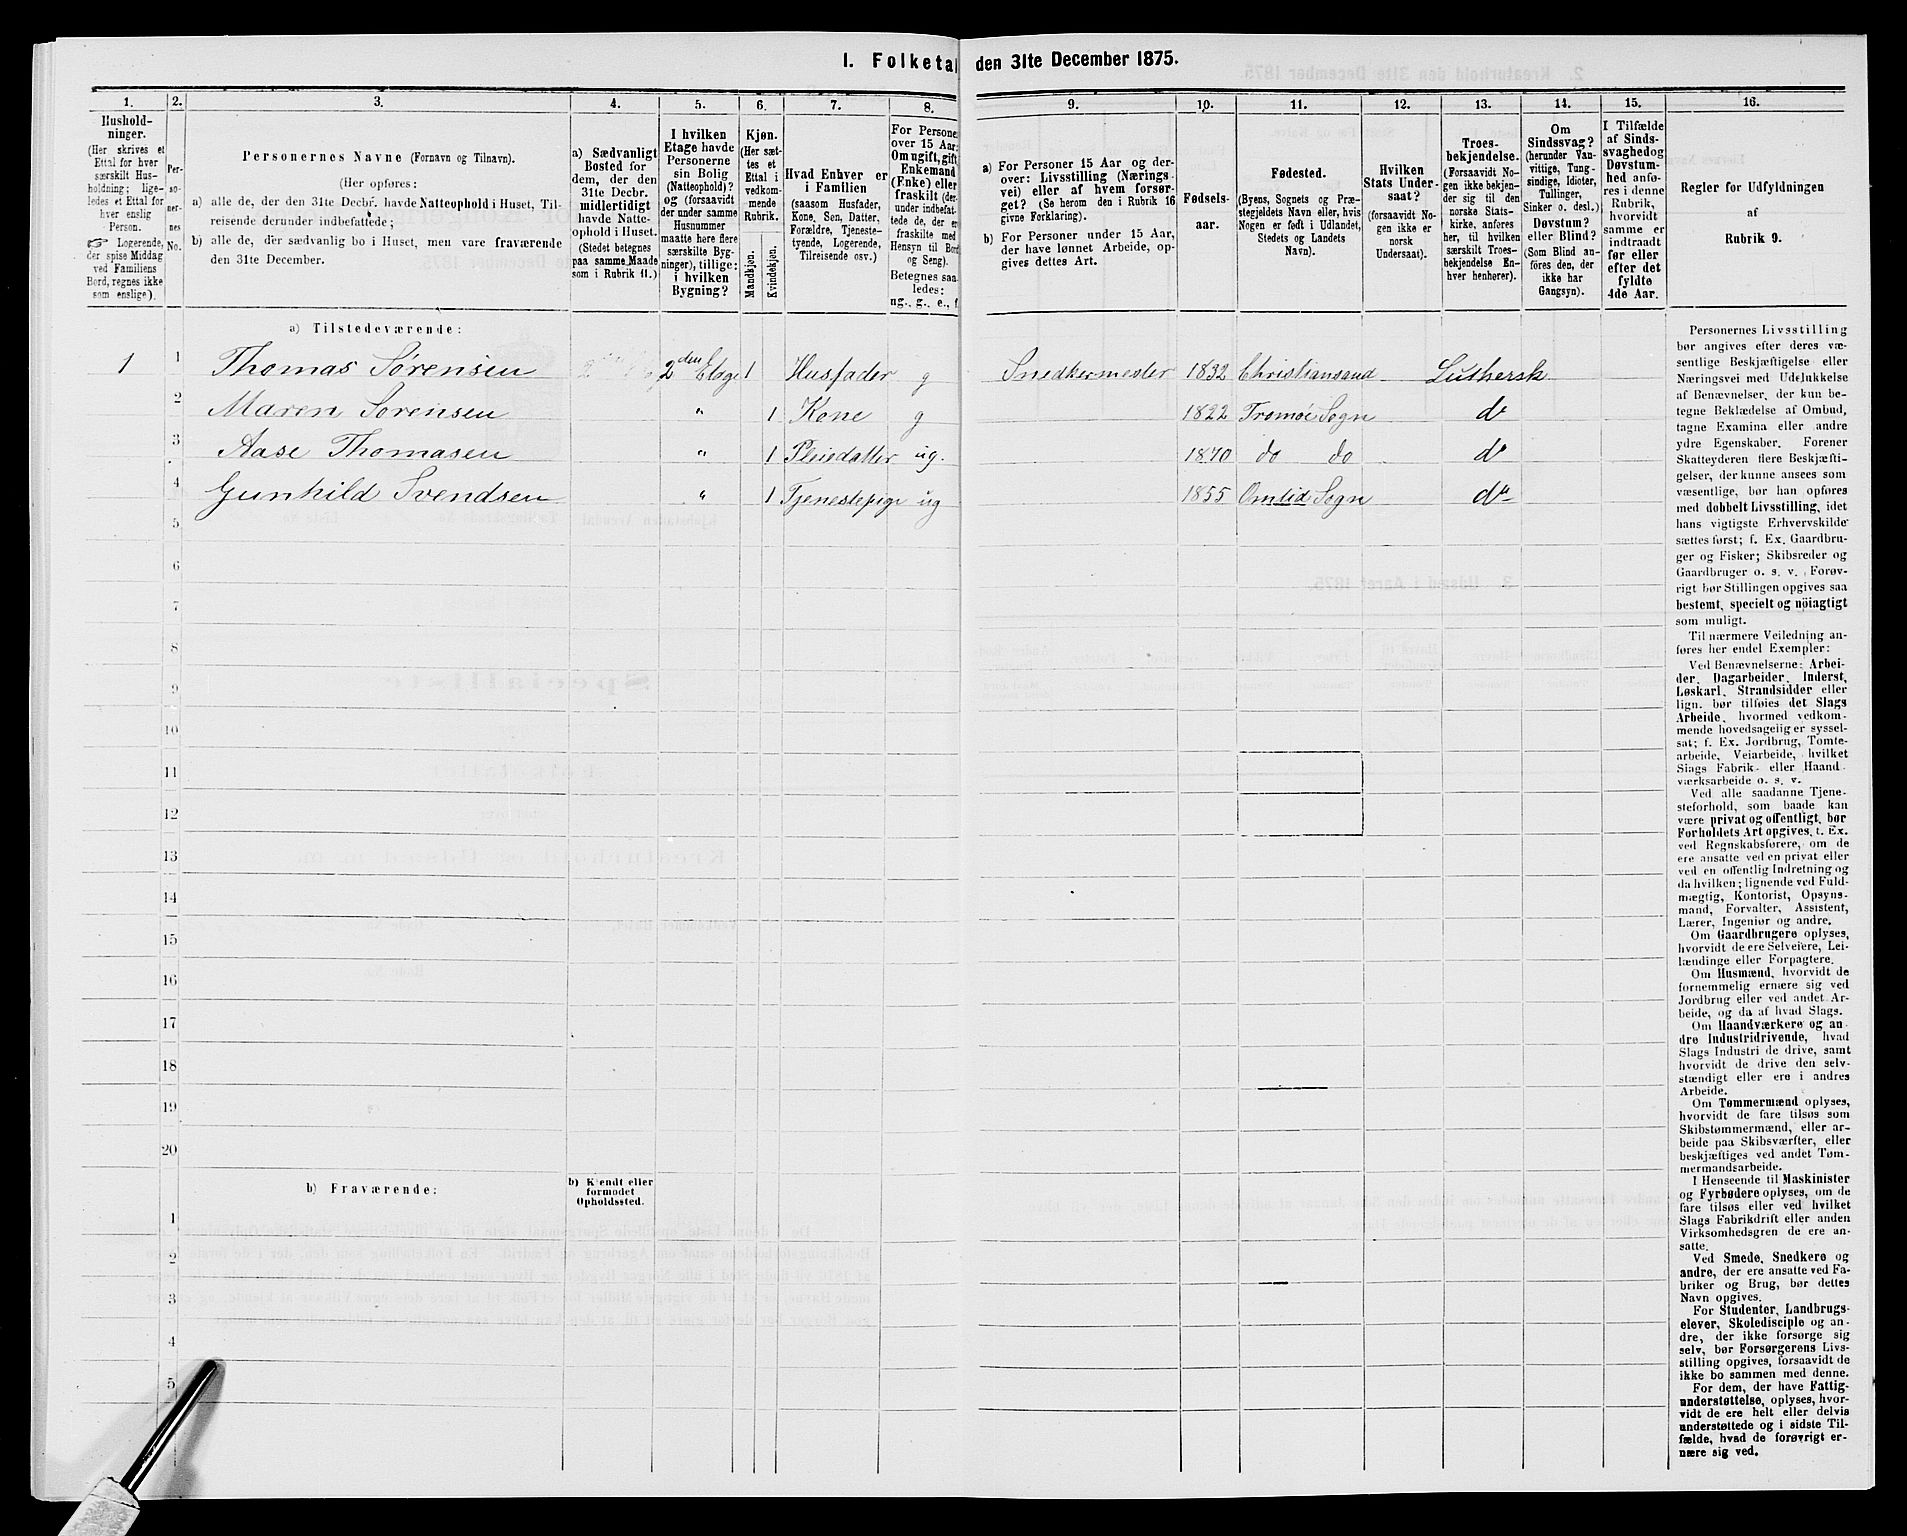 I. Folketal den 31te December 1875.
1. 2. 3. 4. 5. 6. 7. 8. 9. 10. 11. 12. 13. 14. 15. 16.
Hushold-
ninger.
(Her skrives et
Ettal for hver
særskilt Hus-
holdning; lige-
ledes et Ettal for
hver enslig
Person.
☞ Logerende,
der spise Middag
ved Familiens
Bord, regnes ikke
som enslige).
Per-
so-
ner-
nes
No.
Personernes Navne (Fornavn og Tilnavn).
(Her opføres:
a) alle de, der den 31te Decbr. havde Natteophold i Huset, Til-
reisende derunder indbefattede;
b) alle de, der sædvanlig bo i Huset, men vare fraværende
den 31te December.
a) Sædvanligt
Bosted for
dem, der den
31te Decbr.
midlertidigt
havde Natte-
ophold i Huset.
(Stedet betegnes
paa samme Maade
som i Rubrik 11.)
I hvilken
Etage havde
Personerne
sin Bolig
(Natteophold)?
og (forsaavidt
der under samme
Husnummer
maatte høre flere
særskilte Byg-
ninger), tillige:
i hvilken
Bygning?
Kjøn.
(Her sæt-
tes et
Ettal i
vedkom-
mende
Rubrik.
Mandkjøn.
Kvindekjøn.
Hvad Enhver er
i Familien
(saasom Husfader,
Kone, Søn, Datter,
Forældre, Tjeneste-
tyende, Logerende,
Tilreisende osv.)
For Personer
over 15 Aar:
Om ugift, gift,
Enkemand
(Enke) eller
fraskilt (der-
under indbefat-
tede de, der er
fraskilte med
Hensyn til Bord
og Seng).
Betegnes saa-
ledes:
ug., g., e., f.
a) For Personer 15 Aar og der-
over: Livsstilling (Nærings-
vei) eller af hvem forsør-
get? (Se herom den i Rubrik 16
givne Forklaring).
b) For Personer under 15 Aar,
der have lønnet Arbeide, op-
gives dettes Art.
Fødsels-
aar.
Fødested.
(Byens, Sognets og Præ-
stegjeldets Navn eller, hvis
Nogen er født i Udlandet,
Stedets og Landets
Navn).
Hvilken
Stats Under-
saat?
(forsaavidt No-
gen ikke er
norsk
Undersaat).
Troes-
bekjendelse.
(Forsaavidt No-
gen ikke bekjen-
der sig til den
norske Stats-
kirke, anføres
her, til hvilken
særskilt Troes-
bekjendelse En-
hver henhører).
Om
Sindssvag?
(herunder Van-
vittige, Tung-
sindige, Idioter,
Tullinger,
Sinker o. desl.)
Døvstum?
eller Blind?
(Som Blind an-
føres den, der
ikke har
Gangsyn).
I Tilfælde
af Sinds-
svaghed og
Døvstum-
hed anfø-
res i denne
Rubrik,
hvorvidt
samme er
indtraadt
før eller
efter det
fyldte
4de Aar.
Regler for Udfyldningen
af
Rubrik 9.
a) Tilstedeværende:
1 1 Thomas Sørensen 2den Etage 1 Husfader g Snedkermester 1832 Christiansand Luthersk
2 Maren Sørensen " 1 Kone g 1822 Tromøe Sogn do
3 Aase Thomasen " 1 Pleiedatter ug. 1870 do do do
4 Gunhild Svendsen " 1 Tjenestepige ug 1855 Omlid Sogn do
5
6
7
8
9
10
11
12
13
14
15
16
17
18
19
20
b) Fraværende:
b) Kjendt eller
formodet
Opholdssted.
1
2
3
4
5
Personernes Livsstilling
bør angives efter deres væ-
sentlige Beskjæftigelse eller
Næringsvei med Udelukkelse
af Benævnelser, der kun be-
tegne Beklædelse af Ombud,
tagne Examina eller andre
ydre Egenskaber. Forener
Skatteyderen flere Beskjæfti-
gelser, der kunne ansees som
væsentlige, bør han opføres
med dobbelt Livsstilling, idet
hans vigtigste Erhvervskilde
sættes først; f. Ex. Gaardbru-
ger og Fisker; Skibsreder og
Gaardbruger o. s. v. Forøv-
rigt bør Stillingen opgives saa
bestemt, specielt og nöiagtigt
som muligt.
Til nærmere Veiledning an-
føres her endel Exempler:
Ved Benævnelserne: Arbei-
der, Dagarbeider, Inderst,
Løskarl, Strandsidder eller
lign. bør tilføies det Slags
Arbeide, hvormed vedkom-
mende hovedsagelig er syssel-
sat; f. Ex. Jordbrug, Tomte-
arbeide, Veiarbeide, hvilket
Slags Fabrik- eller Haand-
værksarbeide o. s. v.
Ved alle saadanne Tjene-
steforhold, som baade kan
være privat og offentligt, bør
Forholdets Art opgives, t. Ex.
ved Regnskabsførere, om de
ere ansatte ved en privat eller
ved en offentlig Indretning og
da hvilken; lignende ved Fuld-
mægtig, Kontorist, Opsyns-
mand, Forvalter, Assistent,
Lærer, Ingeniør og andre.
Om Gaardbrugere oplyses,
hvorvidt de ere Selveiere, Lei-
lændinge eller Forpagtere.
Om Husmænd, hvorvidt de
fornemmelig ernære sig ved
Jordbrug eller ved andet Ar-
beide, og da af hvad Slags.
Om Haandværkere og an-
dre Industridrivende, hvad
Slags Industri de drive, samt
hvorvidt de drive den selv-
stændigt eller ere i andres
Arbeide.
Om Tømmermænd oplyses,
hvorvidt de fare tilsøs som
Skibstømmermænd, eller ar-
beide paa Skibsværfter, eller
beskjæftiges ved andet Tøm-
mermandsarbeide.
I Henseende til Maskinister
og Fyrbødere oplyses, om de
fare tilsøs eller ved hvilket
Slags Fabrikdrift eller anden
Virksomhedsgren de ere an-
satte.
Ved Smede, Snedkere og
andre, der ere ansatte ved Fa-
briker og Brug, bør dettes
Navn opgives.
For Studenter, Landbrugs-
elever, Skoledisciple og an-
dre, der ikke forsørge sig
selv, bør Forsørgerens Livs-
stilling opgives, forsaavidt de
ikke bo sammen med denne.
For dem, der have Fattig-
understøttelse, oplyses, hvor-
vidt de ere helt eller delvis
understøttede og i sidste Til-
fælde, hvad de forøvrigt er-
nære sig ved.